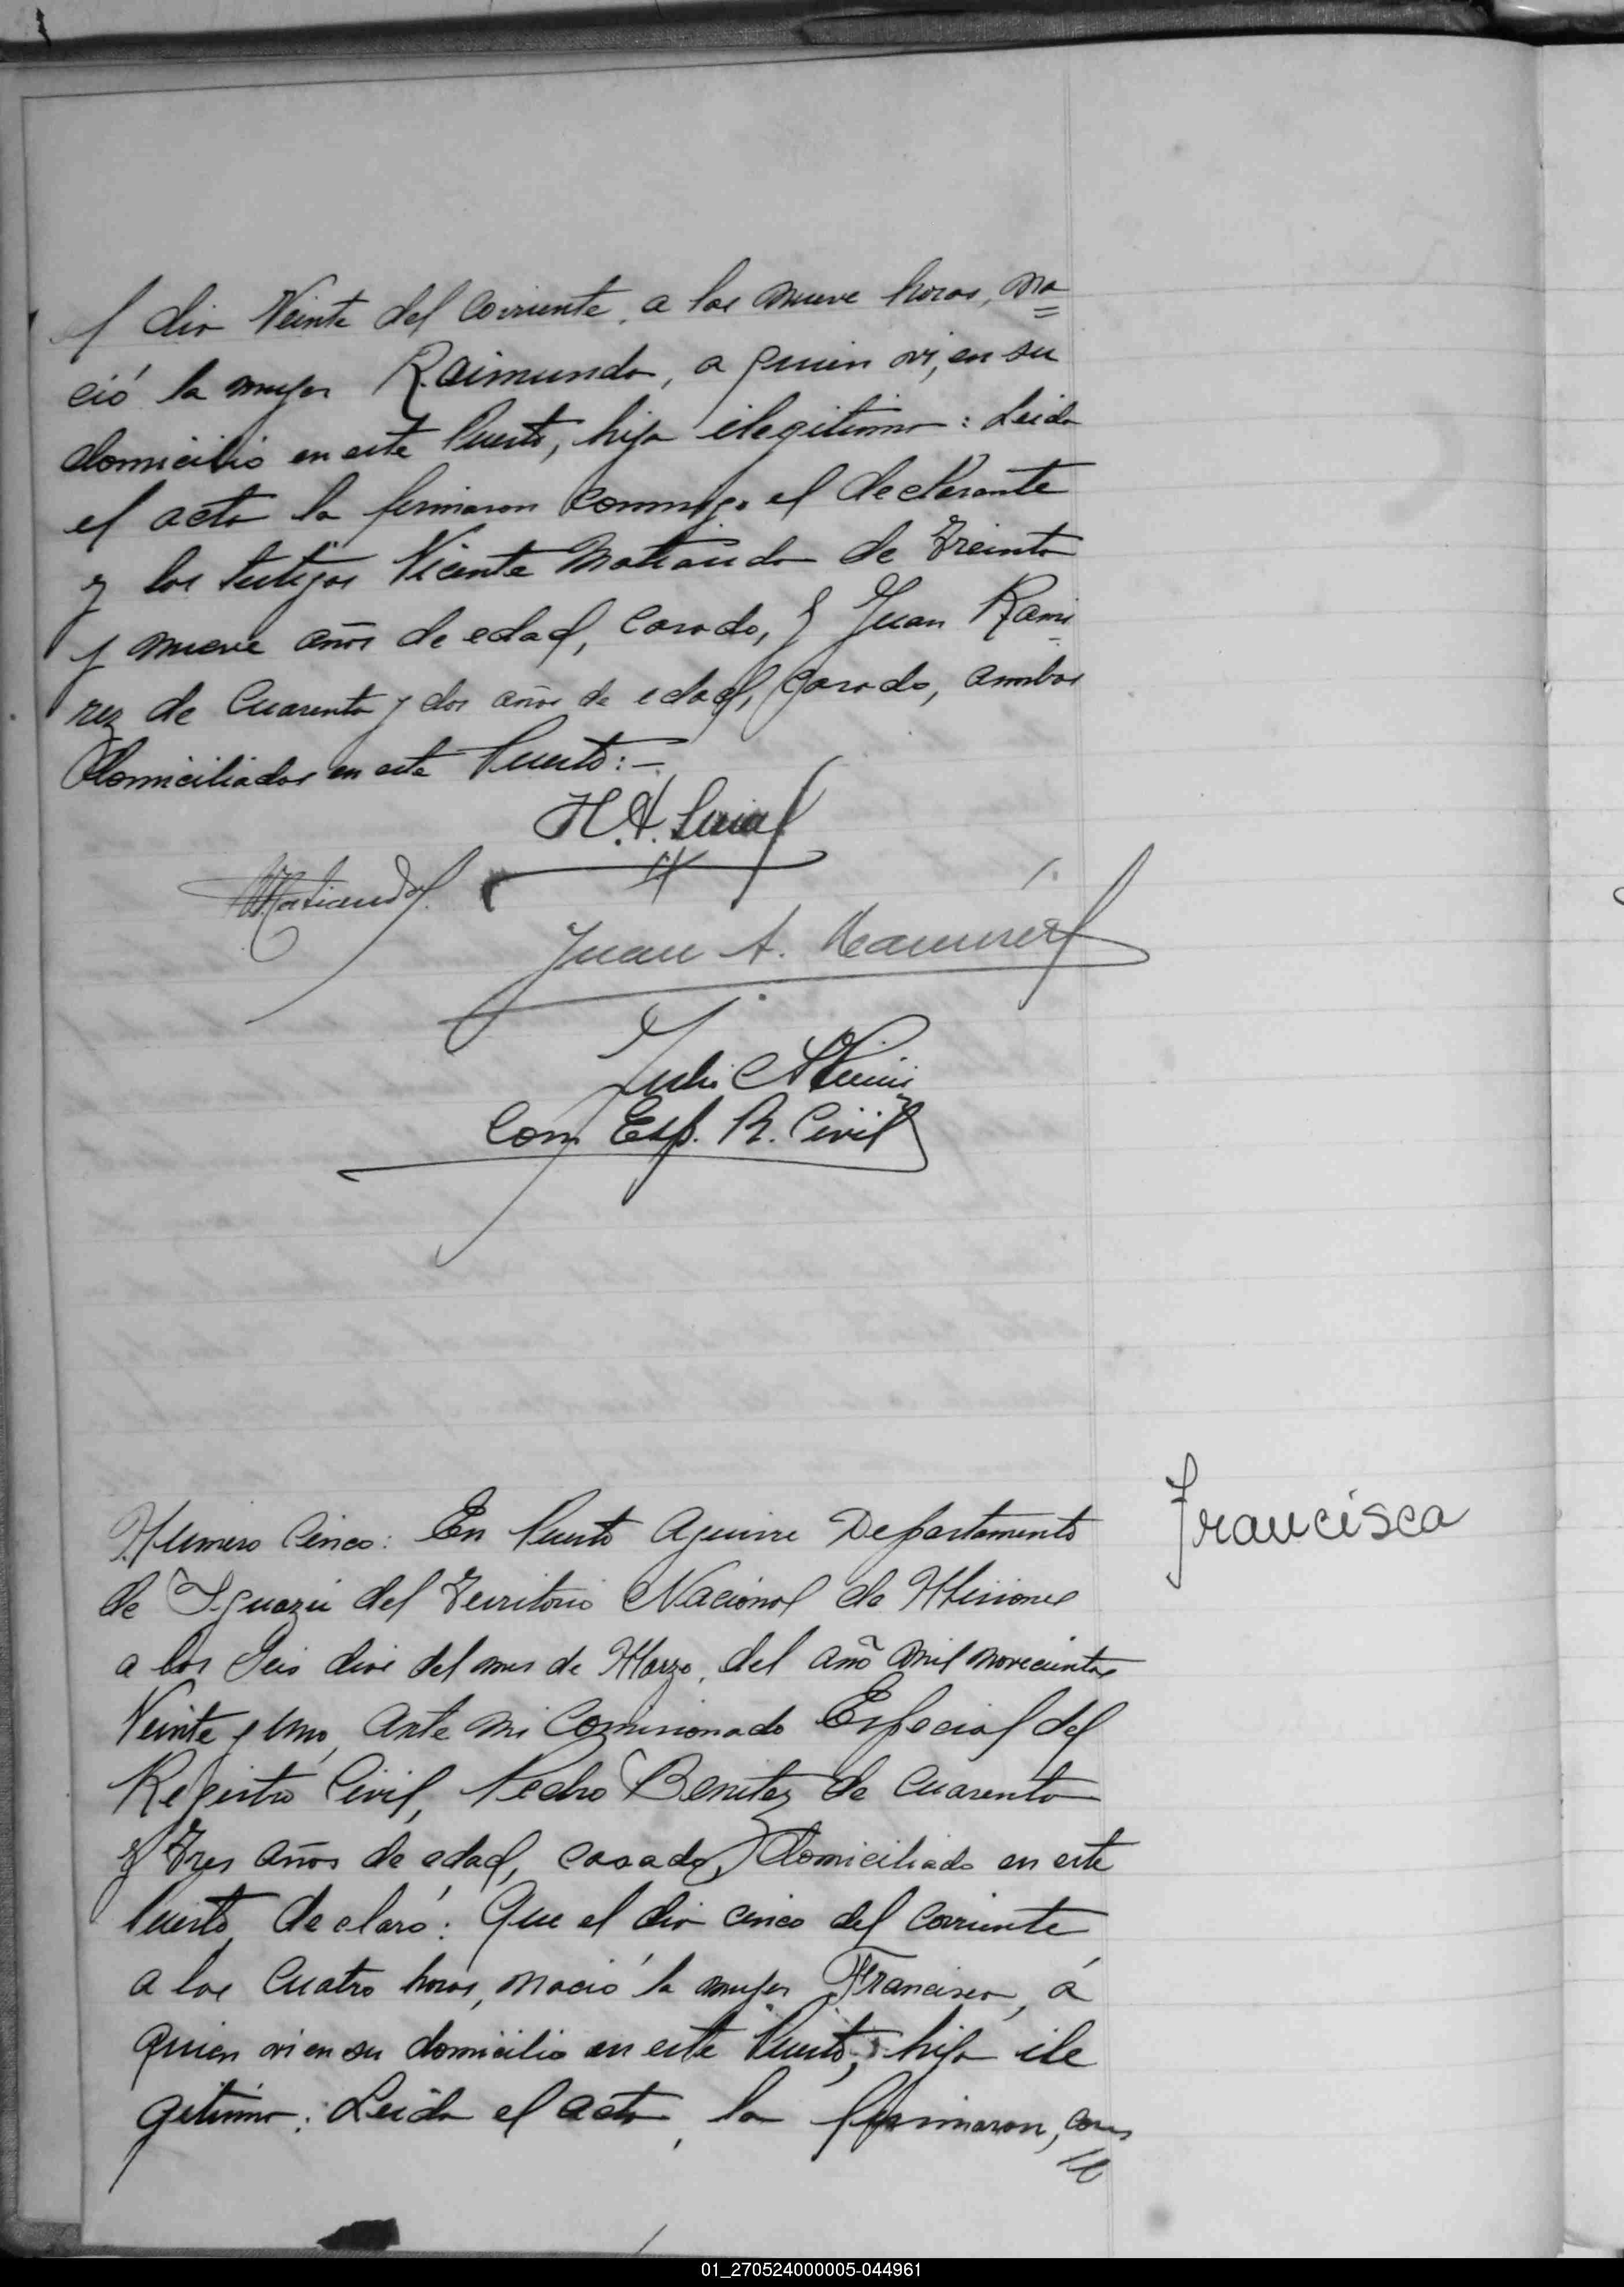 el dia Veinte del Corriente, a las nueve horas, na=
ció la mujer Raimunda, a quien vi, en su
domicilio en este Puerto, hija ilegitima: Leida
el acta la firmaron conmigo el declarante
y los testigos Vicente Matiauda de Treinta
y nueve años de edad, Casado, y Juan Rami
rez de Cuarenta y dos años de edad, Casado, ambos
domiciliados en este Puerto:-
H. A.
Matiauda
Juan A. Ramírez
Julio
Com. Esp. R. Civil
Francisca
Numero Cinco: En Puerto Aguirre Departamento
de Iguazú del Territorio Nacional de Misiones
a los Seis dias del mes de Marzo, del año mil novecientos
Veinte y Uno, Ante mi Comisionado Especial del
Registro Civil, Pedro Benitez de Cuarenta
y Tres años de edad, casado, domiciliado en este
Puerto, declaró: Que el dia cinco del Corriente
a las Cuatro horas, nació la mujer Francisca, á
quien vi en su domicilio en este Puerto, hija ile
gitima: Leida el acta, la firmaron, con